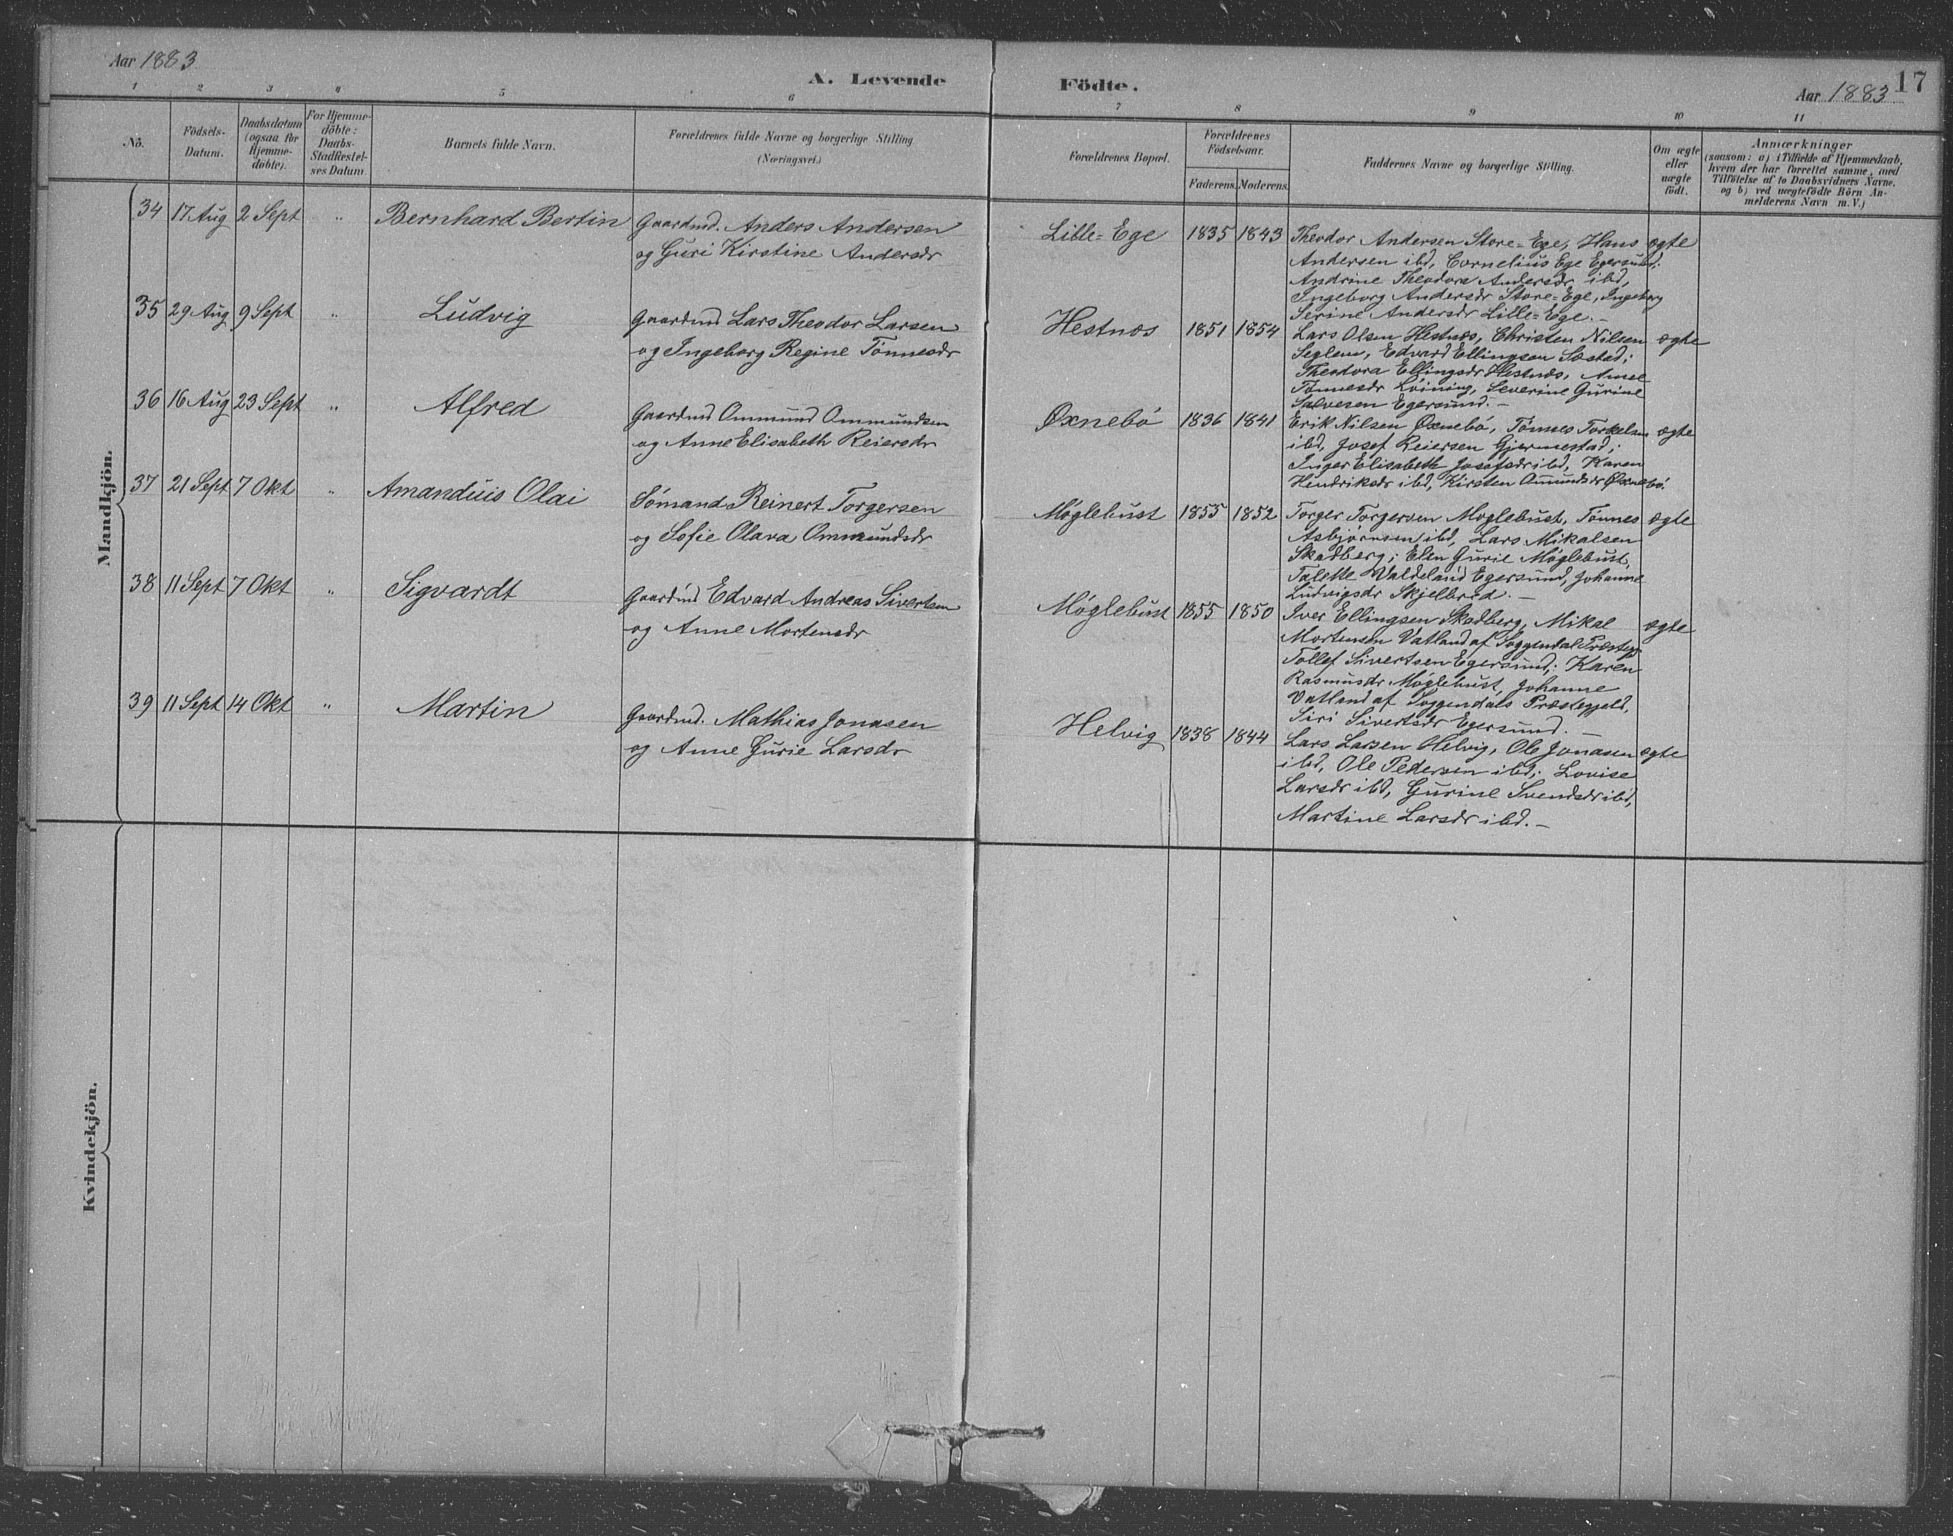 Aar 1883
A. Levende Födte.
Aar 1883 17
1 2 3 4 5 6 7 8 9 10 11
No.
Födsels-Datum.
Daabsdatum (ogsaa for Hjemmedöbte).
For Hjemmedöbte: Daabs-Stadfæstelses Datum.
Barnets fulde Navn.
Forældrenes fulde Navne og borgerlige Stilling
(Næringsvei.)
Forældrenes Bopæl.
Forældrenes Födselsaar.
Faderens. Moderens.
Faddernes Navne og borgerlige Stilling.
Om ægte eller uægte födt.
Anmærkninger
(saasom: a) i Tilfælde af Hjemmedaab,
hvem der har forrettet samme, med
Tilföielse af to Daabsvidners Navne.
og b) ved uægtefödte Börn An-
melderens Navn m. V.)
Mandkjön.
34 17 Aug 2 Sept " Bernhard Bertin
Gaardmd. Anders Andersen
og Guri Kirstine Andersdr
Lille-Ege 1835 1843
Theodor Andersen Store-Ege, Hans
Andersen ibd, Cornelius Ege Egersund;
Andrine Theodora Andersdr ibd,
Ingeborg Andersdr Store-Ege, Ingeborg
Serine Andersdr Lille-Ege.–
ægte
35 29 Aug 9 Sept " Ludvig
Gaardmd Lars Theodor Larsen
og Ingeborg Regine Tönnesdr
Hestnæs 1851 1854
Lars Olsen Hestnæs, Christen Nilsen
Seglem, Edvard Ellingsen Sæstad;
Theodora Ellingsdr Hestnæs, Anne
Tönnesdr Löining, Severine Gurine
Salvesen Egersund.–
ægte
36 16 Aug 23 Sept " Alfred
Gaardmd Ommund Ommundsen
og Anne Elisabeth Reiersdr
Øxnebö 1836 1841
Erik Nilsen Øxnebö, Tönnes Torkelsen
ibd, Josef Reiersen Gjermestad;
Inger Elisabeth Josefsdr ibd, Karen
Hendriksdr ibd, Kirsten Ommundsdr Øxnebö.
ægte
37 21 Sept 7 Okt " Amanduis Olai
Sömand Reinert Torgersen
og Sofie Olava Ommundsdr
Möglebust 1855 1852
Torger Torgersen Möglebust, Tönnes
Asbjörnsen ibd, Lars Mikalsen
Skadberg; Elen Gurie Möglebust,
Talette Waldeland Egersund, Johanne
Ludvigsdr Skjelbred.–
ægte
38 11 Sept 7 Okt " Sigvardt
Gaardmd Edvard Andreas Sivertsen
og Anne Mortensdr
Möglebust 1855 1850
Iver Ellingsen Skadberg, Mikal
Mortensen Vatland af Soggendal Præstegj.
Tollef Sivertsen Egersund; Karen
Rasmusdr Möglebust, Johanne
Vatland af Soggendals Præstegjeld,
Siri Sivertsdr Egersund.–
ægte
39 11 Sept 14 Okt " Martin
Gaardmd. Mathias Jonasen
og Anne Gurie Larsdr
Helvig 1838 1844
Lars Larsen Helvig, Ole Jonasen
ibd, Ole Pedersen ibd; Lovise
Larsdr ibd, Gurine Svendsdr ibd,
Martine Larsdr ibd.–
ægte
Kvindekjön.